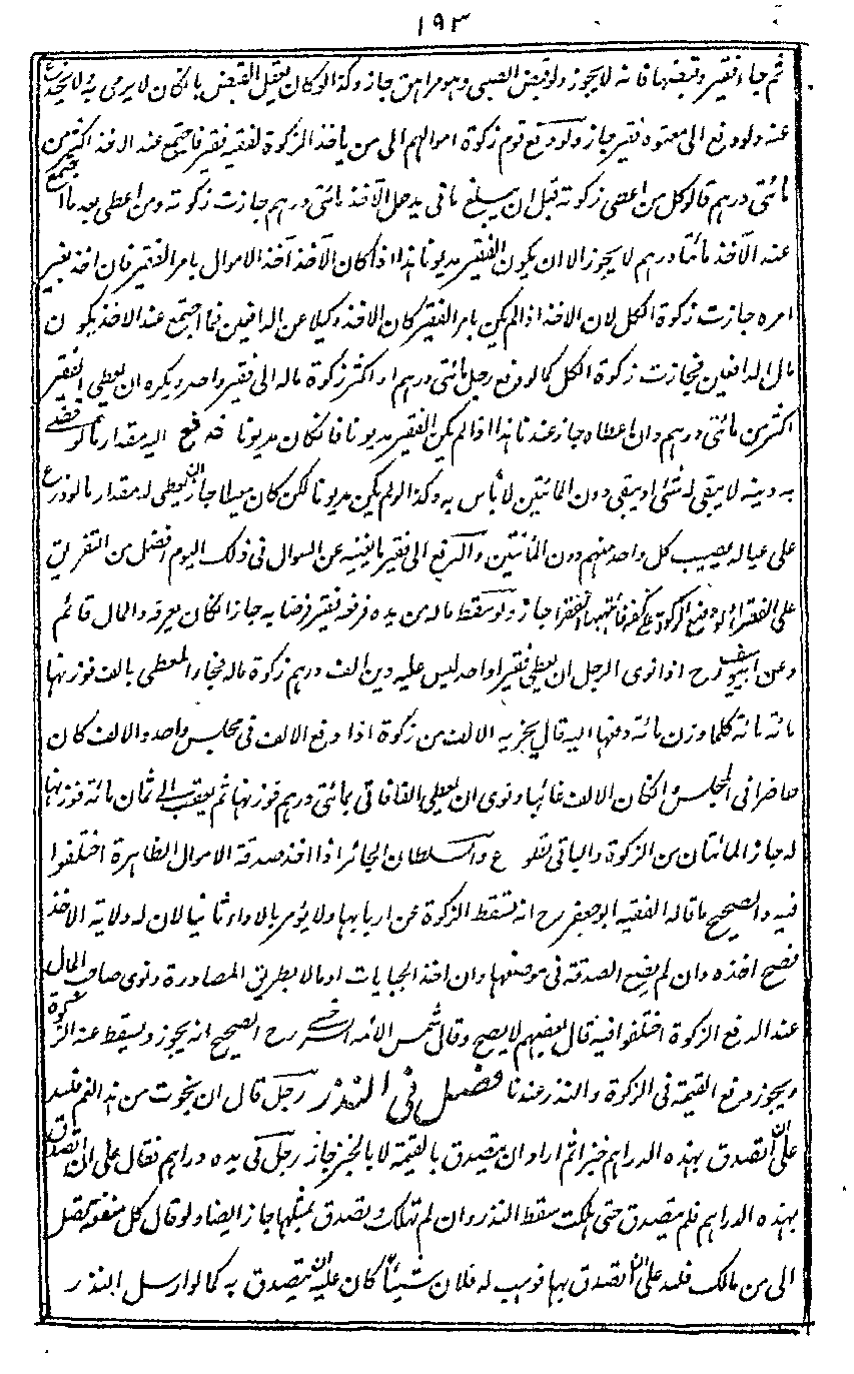 ١٩٣
ثم جاء فقير وقبضها فانه لا يجوز ولو قبض الصبى وهو مراهق جاز وكذا لو كان يعقل القبض بان كان لا يرمى به ولا يخدع
عنه ولو دفع الى معتوه فقير جاز ولو دفع قوم زكوة اموالهم الى من ياخذ الزكوة لفقير فاجتمع عند الاخذ اكثر من
مائتى درهم قالوا كل من اعطى زكوته قبل ان يبلغ ما فى يد الاخذ مائتى درهم جازت زكوته ومن اعطى بعد ما اجتمع
عند الآخذ مائتا درهم لا يجوز الا ان يكون الفقير مديونا هذا اذا كان الآخذ اخذ الاموال بامر الفقير فان اخذ بغير
امره جازت زكوة الكل لان الاخذ اذا لم يكن بامر الفقير كان الاخذ وكيلا عن الدافعين فما اجتمع عند الاخذ يكون
مال الدافعين فجازت زكوة الكل كما لو دفع رجل مائتى درهم او اكثر زكوة ماله الى فقير واحد ويكره ان يعطى الفقير
اكثر من مائتى درهم وان اعطاه جاز عندنا هذا اذا لم يكن الفقير مديونا فان كان مديونا فدفع اليه مقدار ما لو قضى
به دينه لا يبقى له شئ او يبقى دون المائتين لا باس به وكذا لو لم يكن مديونا لكن كان معيلا جاز ان يعطى له مقدار ما لو وزع
على عياله يصيب كل واحد منهم دون المائتين والدفع الى فقير ما يغنيه عن السوال فى ذلك اليوم افضل من التفريق
على الفقراء ولو وضع الزكوة على كفه فانتهبها الفقراء جاز ولو سقط ماله من يده فرفعه فقير فرضى به جاز ان كان يعرفه والمال قائم
وعن ابى يوسف رح اذا نوى الرجل ان يعطى فقيرا واحدا ليس عليه دين الف درهم زكوة ماله فجاء المعطى بالف فوزنها
مائة مائة كلما وزن مائة دفعها اليه قال يجزيه الالف من زكوة اذا دفع الالف فى مجلس واحد والالف كان
حاضرا فى المجلس وان كان الالف غائبا ونوى ان يعطى الفا فاتى بمائتى درهم فوزنها ثم بمائة فوزنها
له جاز المائتان من الزكوة والباقى تطوع والسلطان الجائر اذا اخذ صدقة الاموال الظاهرة اختلفوا
فيه والصحيح ما قاله الفقيه ابو جعفر رح انه تسقط الزكوة عن اربابها ولا يؤمر بالاداء ثانيا لان له ولاية الاخذ
فصح اخذه وان لم يضع الصدقة فى موضعها وان اخذ الجبايات او مالا بطريق المصادرة ونوى صاحب المال
عند الدفع الزكوة اختلفوا فيه قال بعضهم لا يصح وقال شمس الائمة السرخسى رح الصحيح انه يجوز ويسقط عنه الزكوة
ويجوز دفع القيمة فى الزكوة والنذر عندنا فصل فى النذر رجل قال ان نجوت من هذا الغم فلله
على ان اتصدق بهذه الدراهم خبزا ثم اراد ان يتصدق بالقيمة لا بالخبز جاز رجل فى يده دراهم فقال لله على ان اتصدق
بهذه الدراهم فلم يتصدق حتى هلكت سقط النذر وان لم تهلك وتصدق بمثلها جاز ايضا ولو قال كل منفعة تصل
الى من مالك فلله على ان اتصدق بها فوهب له فلان شيئا كان عليه ان يتصدق به كما لو ارسل النذر